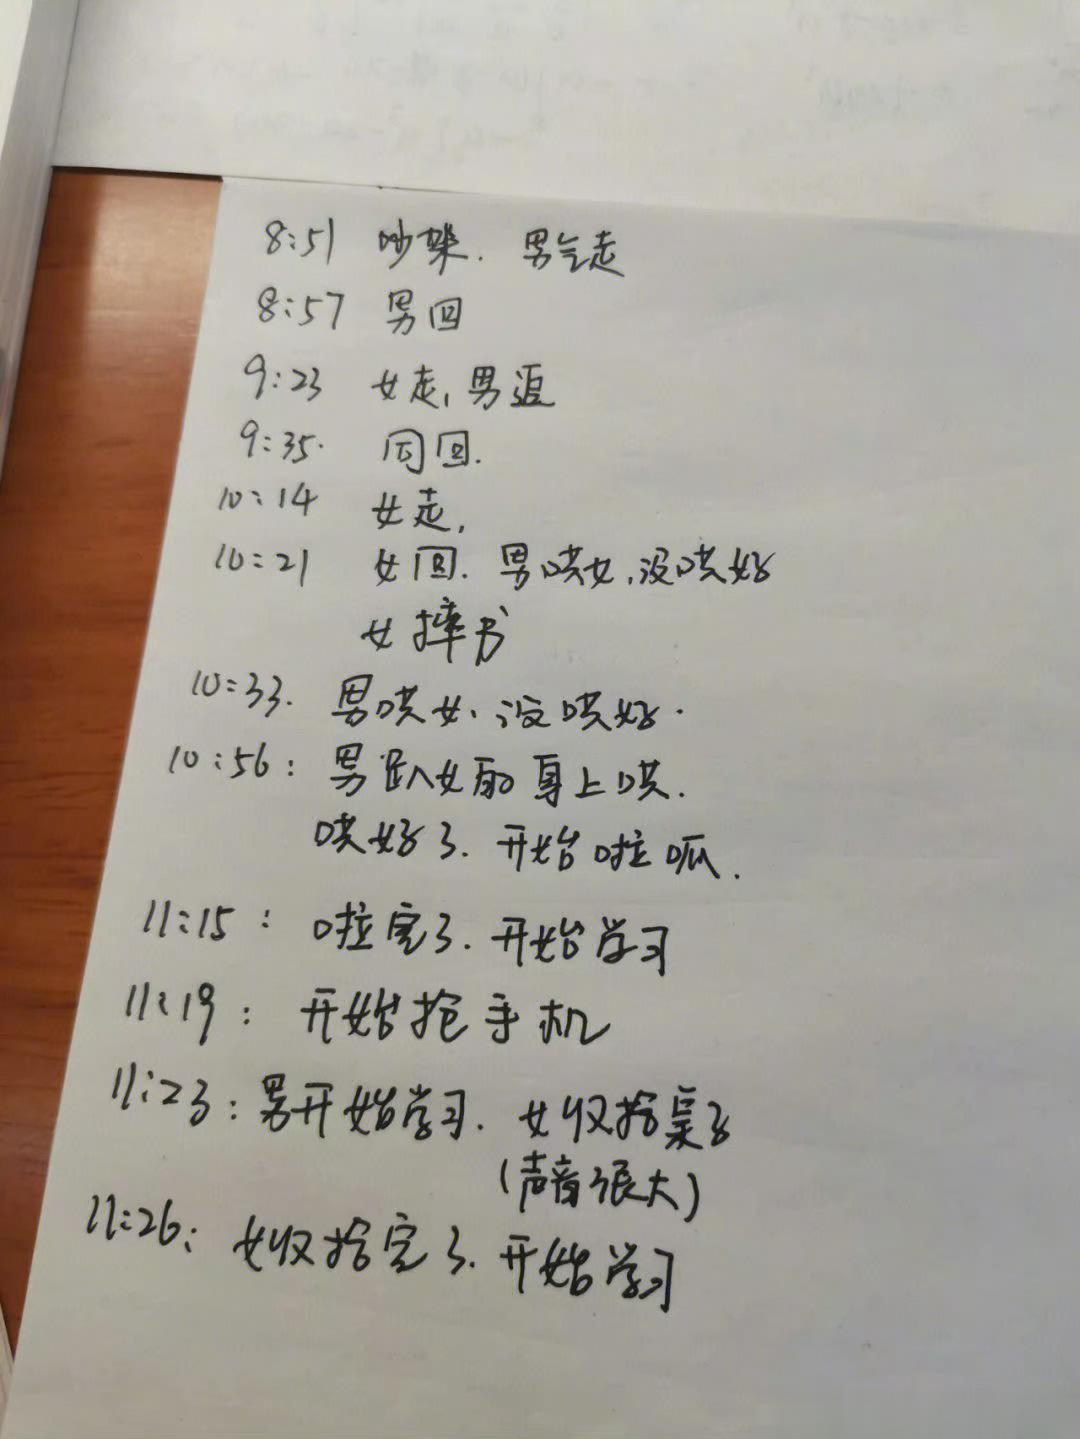 8:51 吵架. 男气走
8:57 男回
9:23 女走, 男追
9:35. 同回.
10:14 女走,
10:21 女回. 男哄女, 没哄好
女摔书
10:33. 男哄女、没哄好.
10:56: 男趴女的身上哄.
哄好了. 开始啦呱.
11:15: 啦完了. 开始学习
11:19: 开始抢手机
11:23: 男开始学习. 女收拾桌子
(声音很大)
11:26: 女收拾完了. 开始学习